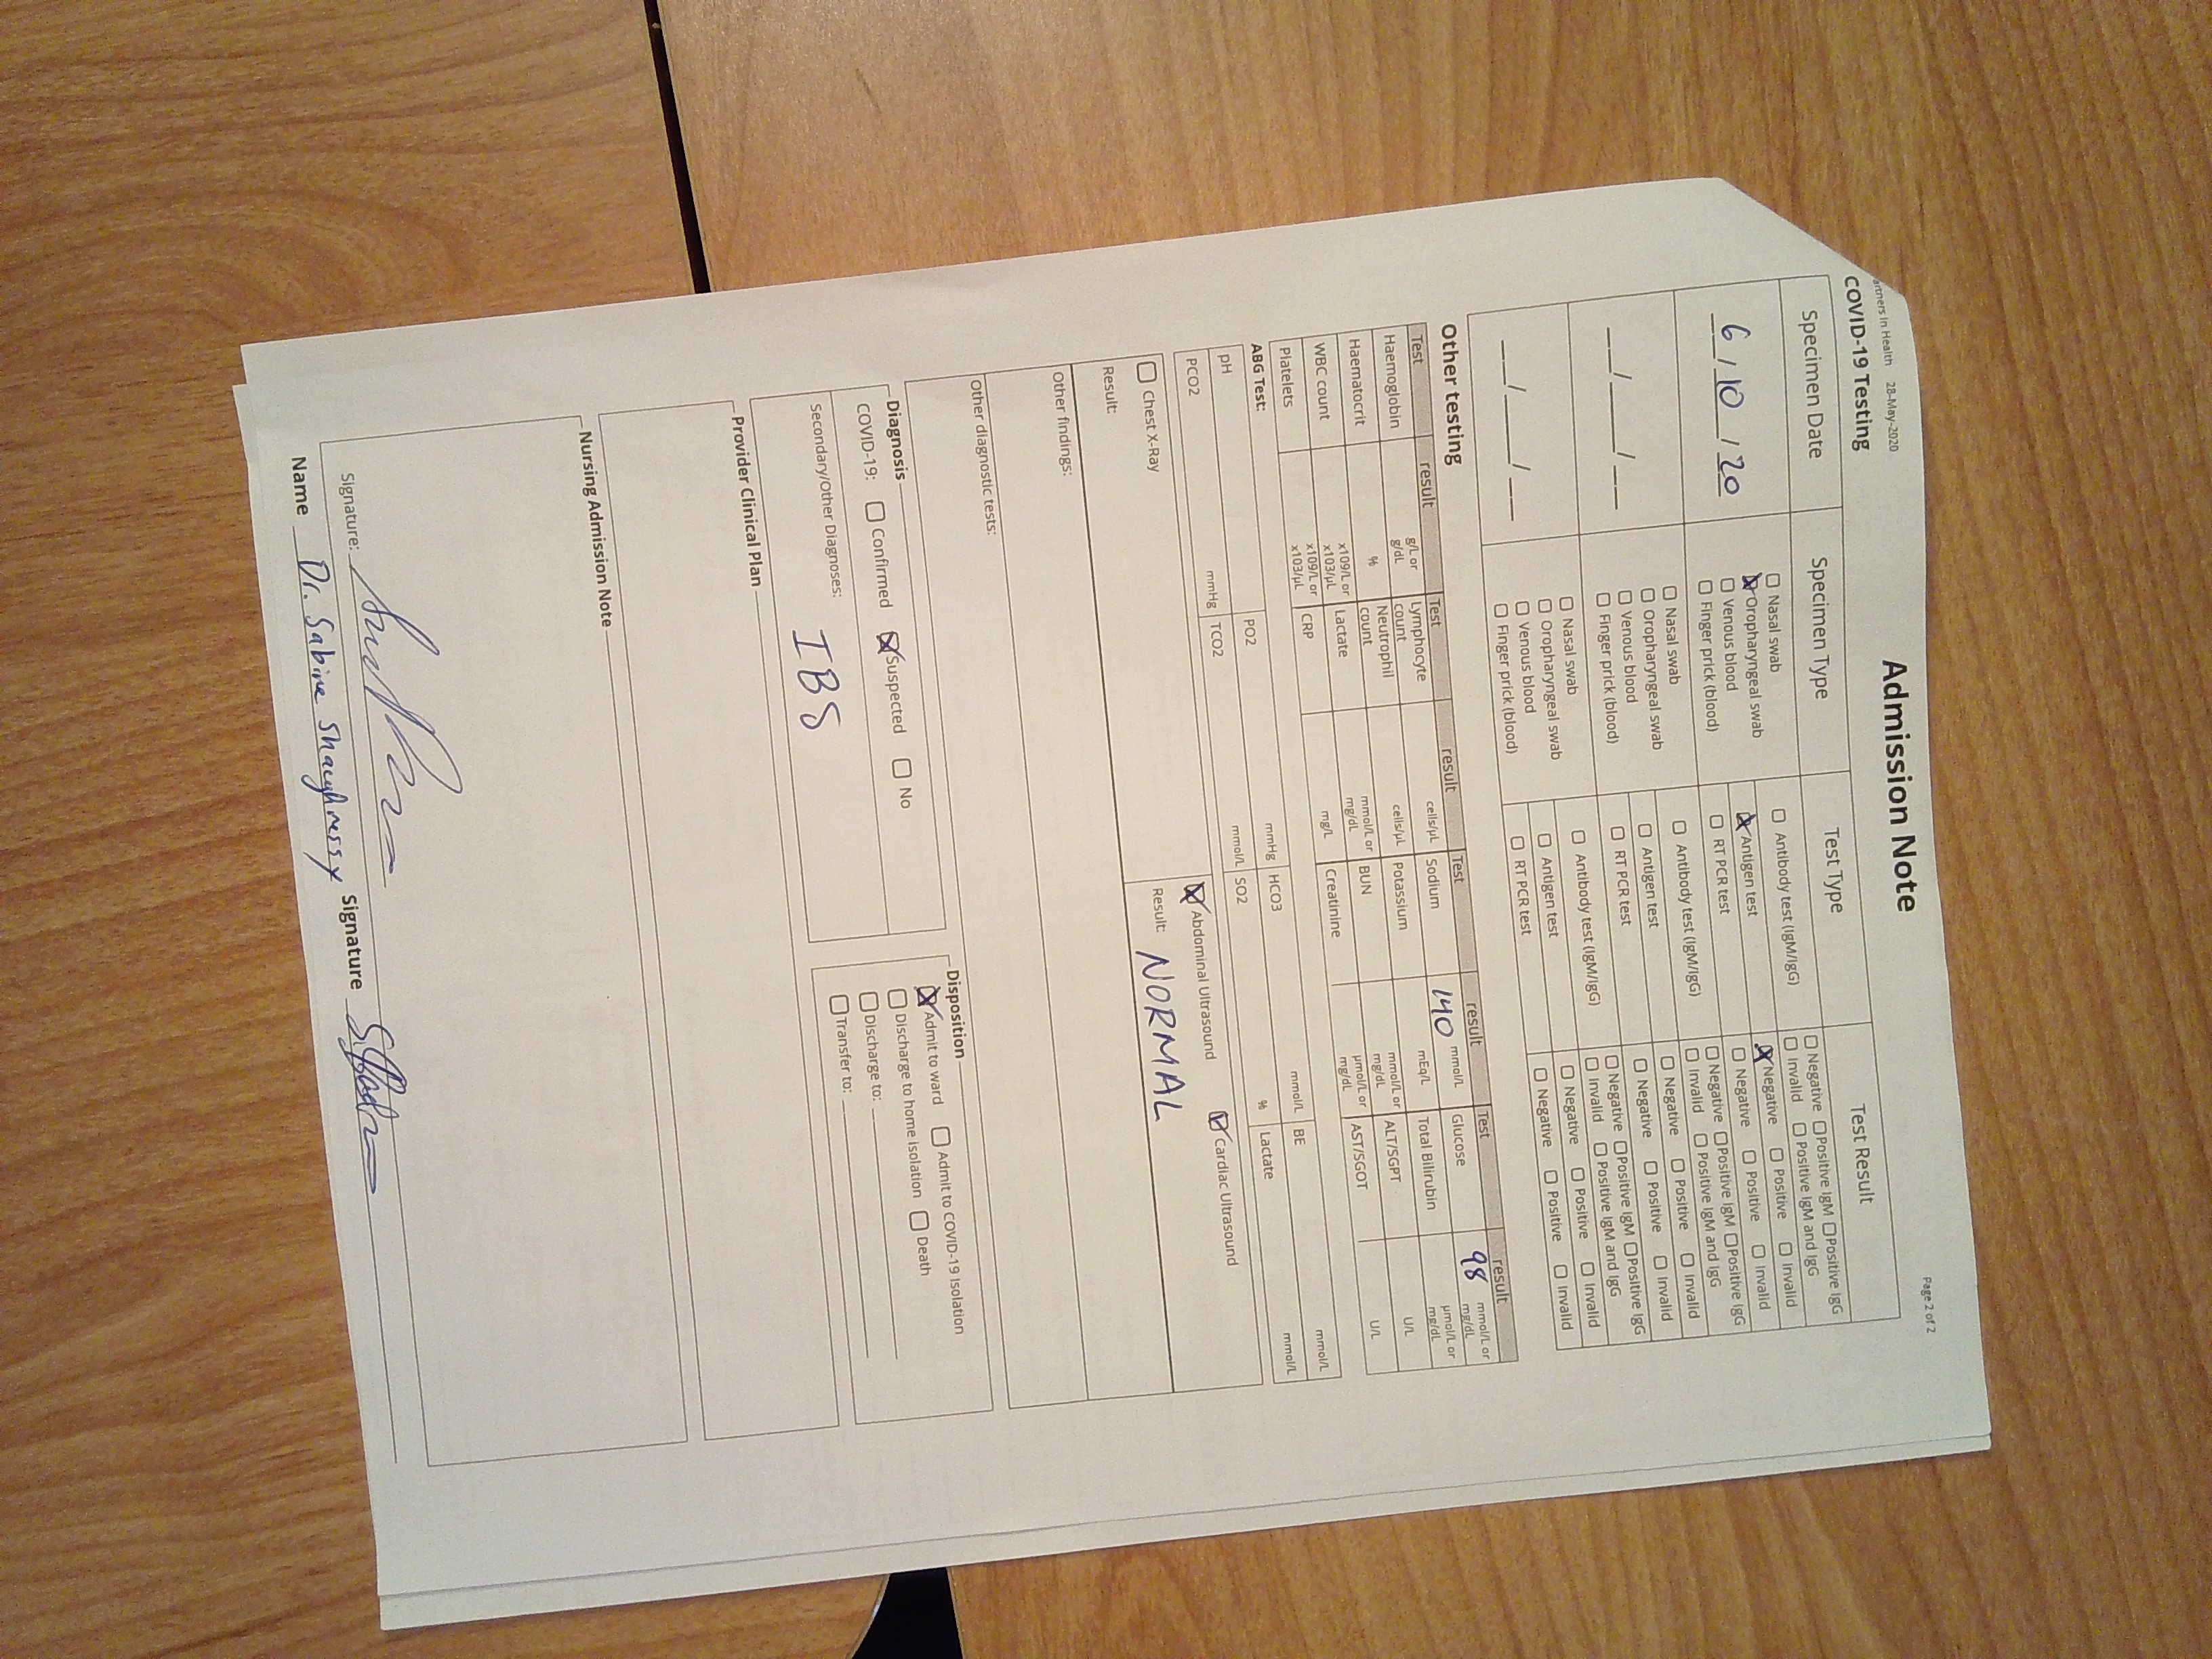 artners In Health 28-May-2020
Page 2 of 2
Admission Note
COVID-19 Testing
Specimen Date Specimen Type Test Type Test Result
6/10/20
☐ Nasal swab
☒ Oropharyngeal swab
☐ Venous blood
☐ Finger prick (blood)
☐ Antibody test (IgM/IgG) ☐ Negative ☐ Positive IgM ☐ Positive IgG
☐ Invalid ☐ Positive IgM and IgG
☒ Antigen test ☒ Negative ☐ Positive ☐ Invalid
☐ RT PCR test ☐ Negative ☐ Positive ☐ Invalid
__/__/__
☐ Nasal swab
☐ Oropharyngeal swab
☐ Venous blood
☐ Finger prick (blood)
☐ Antibody test (IgM/IgG) ☐ Negative ☐ Positive IgM ☐ Positive IgG
☐ Invalid ☐ Positive IgM and IgG
☐ Antigen test ☐ Negative ☐ Positive ☐ Invalid
☐ RT PCR test ☐ Negative ☐ Positive ☐ Invalid
__/__/__
☐ Nasal swab
☐ Oropharyngeal swab
☐ Venous blood
☐ Finger prick (blood)
☐ Antibody test (IgM/IgG) ☐ Negative ☐ Positive IgM ☐ Positive IgG
☐ Invalid ☐ Positive IgM and IgG
☐ Antigen test ☐ Negative ☐ Positive ☐ Invalid
☐ RT PCR test ☐ Negative ☐ Positive ☐ Invalid
Other testing
Test result Test result Test result Test result
Haemoglobin g/L or g/dL Lymphocyte count cells/µL Sodium 140 mmol/L Glucose 98 mmol/L or mg/dL
Haematocrit % Neutrophil count cells/µL Potassium mEq/L Total Bilirubin µmol/L or mg/dL
WBC count x109/L or x103/µL Lactate mmol/L or mg/dL BUN mmol/L or mg/dL ALT/SGPT U/L
Platelets x109/L or x103/µL CRP mg/L Creatinine µmol/L or mg/dL AST/SGOT U/L
ABG Test:
pH PO2 mmHg HCO3 mmol/L BE mmol/L
PCO2 mmHg TCO2 mmol/L SO2 % Lactate mmol/L
☐ Chest X-Ray ☒ Abdominal Ultrasound ☒ Cardiac Ultrasound
Result: Result: NORMAL
Other findings:
Other diagnostic tests:
Diagnosis
COVID-19: ☐ Confirmed ☒ Suspected ☐ No
Secondary/Other Diagnoses: IBS
Disposition
☒ Admit to ward ☐ Admit to COVID-19 Isolation
☐ Discharge to home isolation ☐ Death
☐ Discharge to:
☐ Transfer to:
Provider Clinical Plan
Nursing Admission Note
Signature:
Name Dr. Sabine Shaughnessy Signature